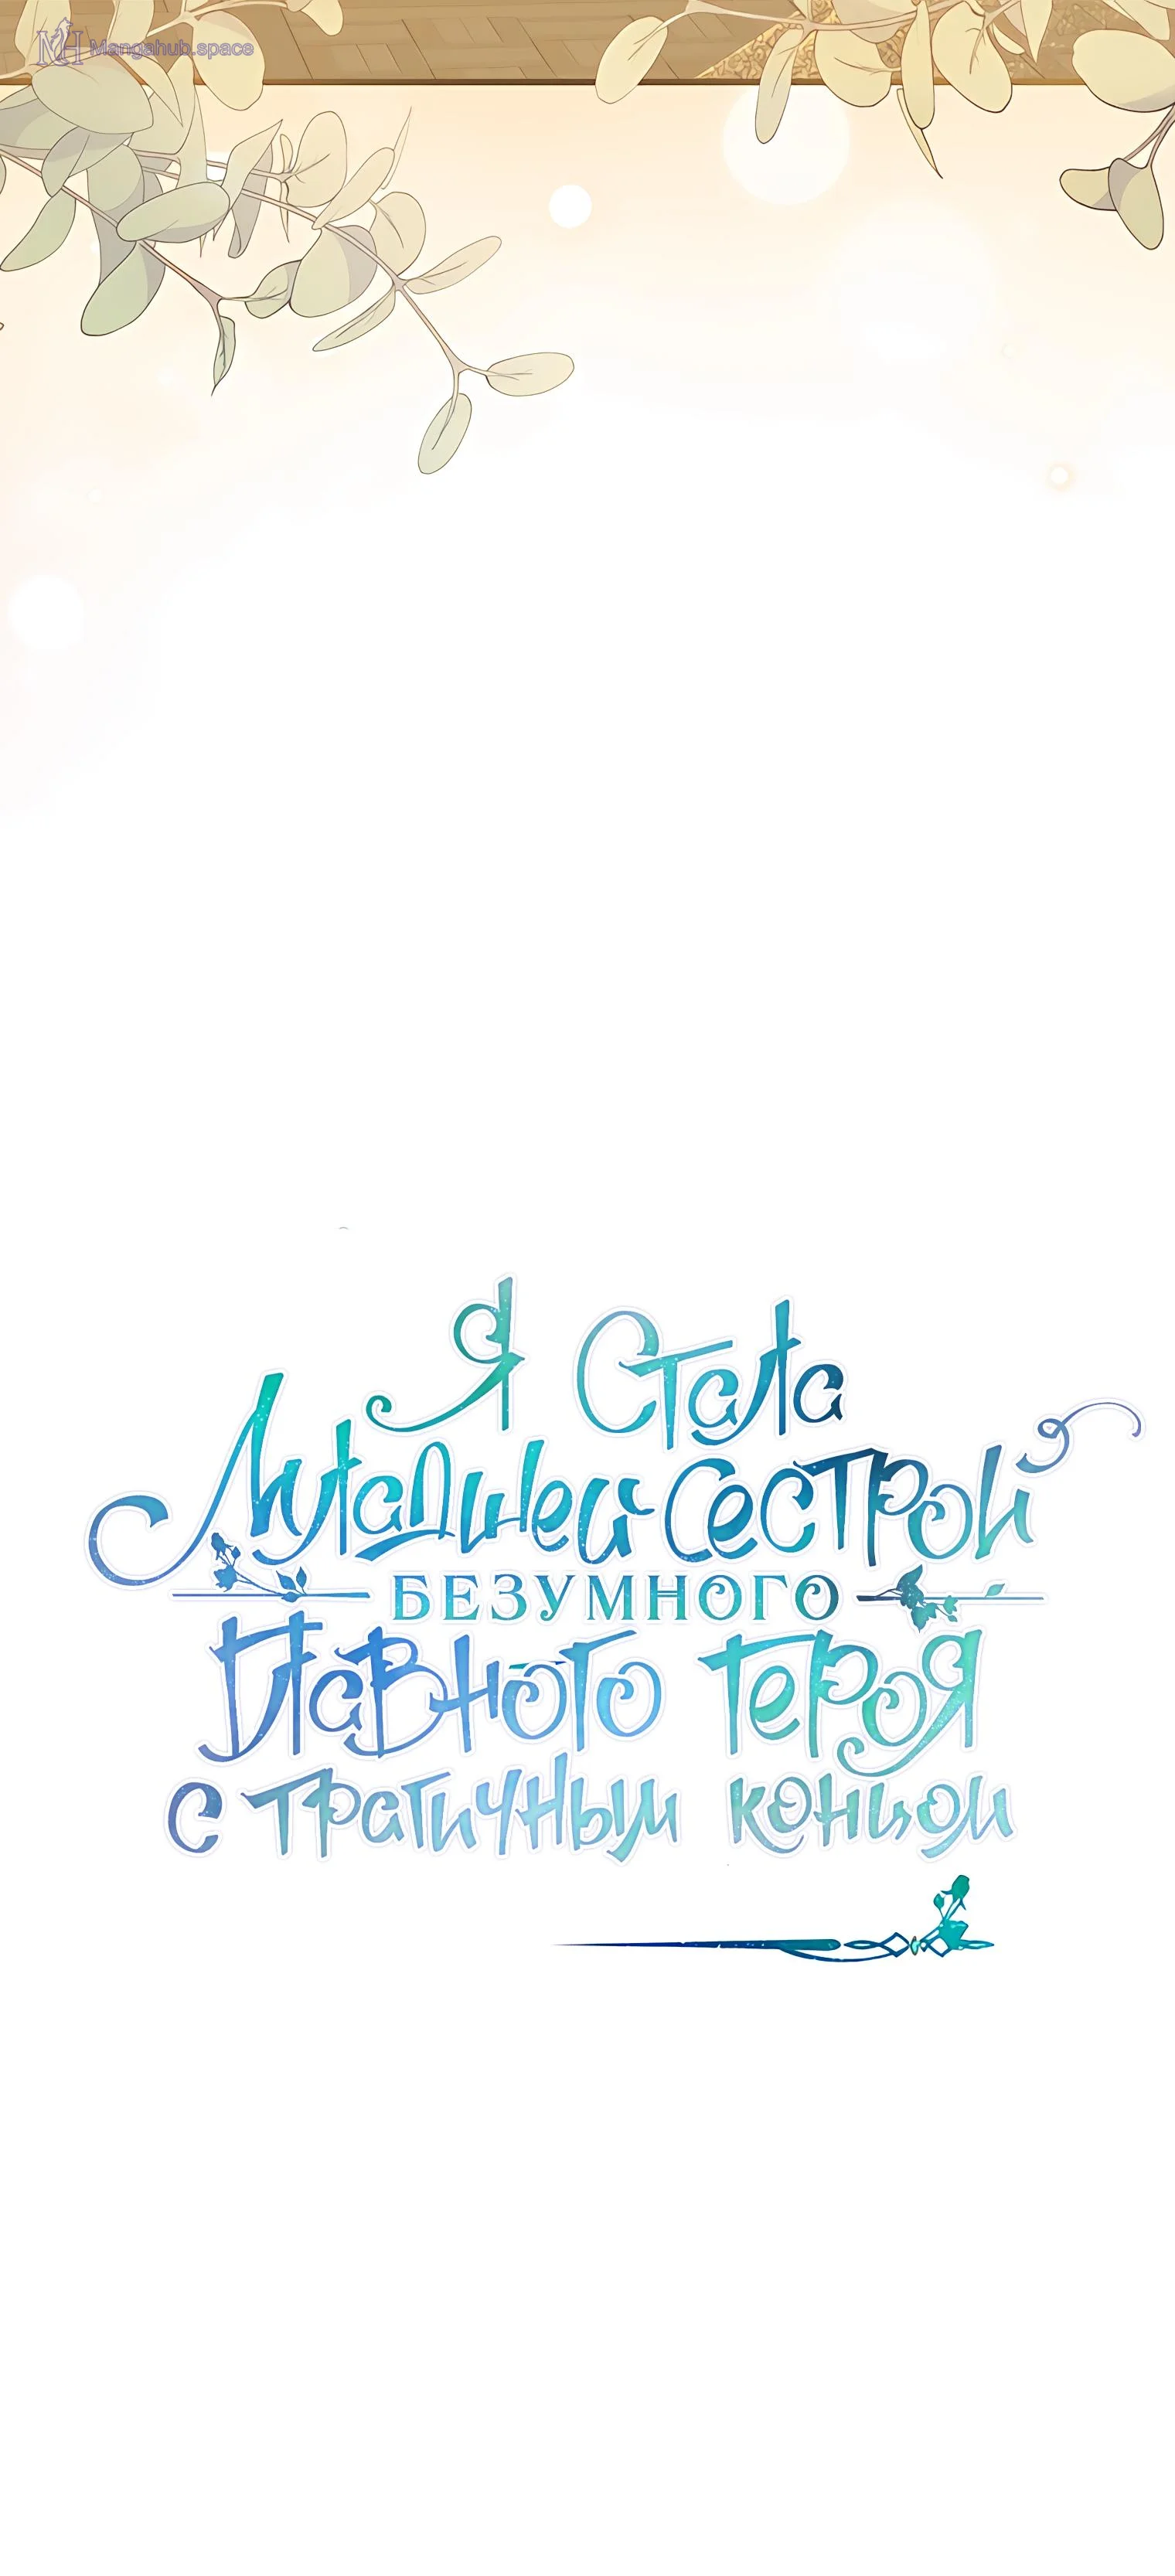 MH Mangahub.space
Я Стала
Младшей сестрой
БЕЗУМНОГО
Главного героя
с трагичным концом